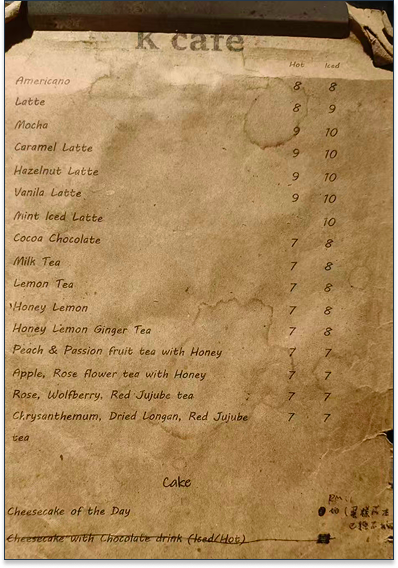 K cafe
Hot Iced
Americano 8 8
Latte 8 9
Mocha 9 10
Caramel Latte 9 10
Hazelnut Latte 9 10
Vanila Latte 9 10
Mint Iced Latte 10
Cocoa Chocolate 7 8
Milk Tea 7 8
Lemon Tea 7 8
Honey Lemon 7 8
Honey Lemon Ginger Tea 7 8
Peach & Passion fruit tea with Honey 7 7
Apple, Rose flower tea with Honey 7 7
Rose, Wolfberry, Red Jujube tea 7 7
Chrysanthemum, Dried Longan, Red Jujube 7 7
tea
Cake
RM
Cheesecake of the Day 10
Cheesecake with Chocolate drink (Iced/Hot)